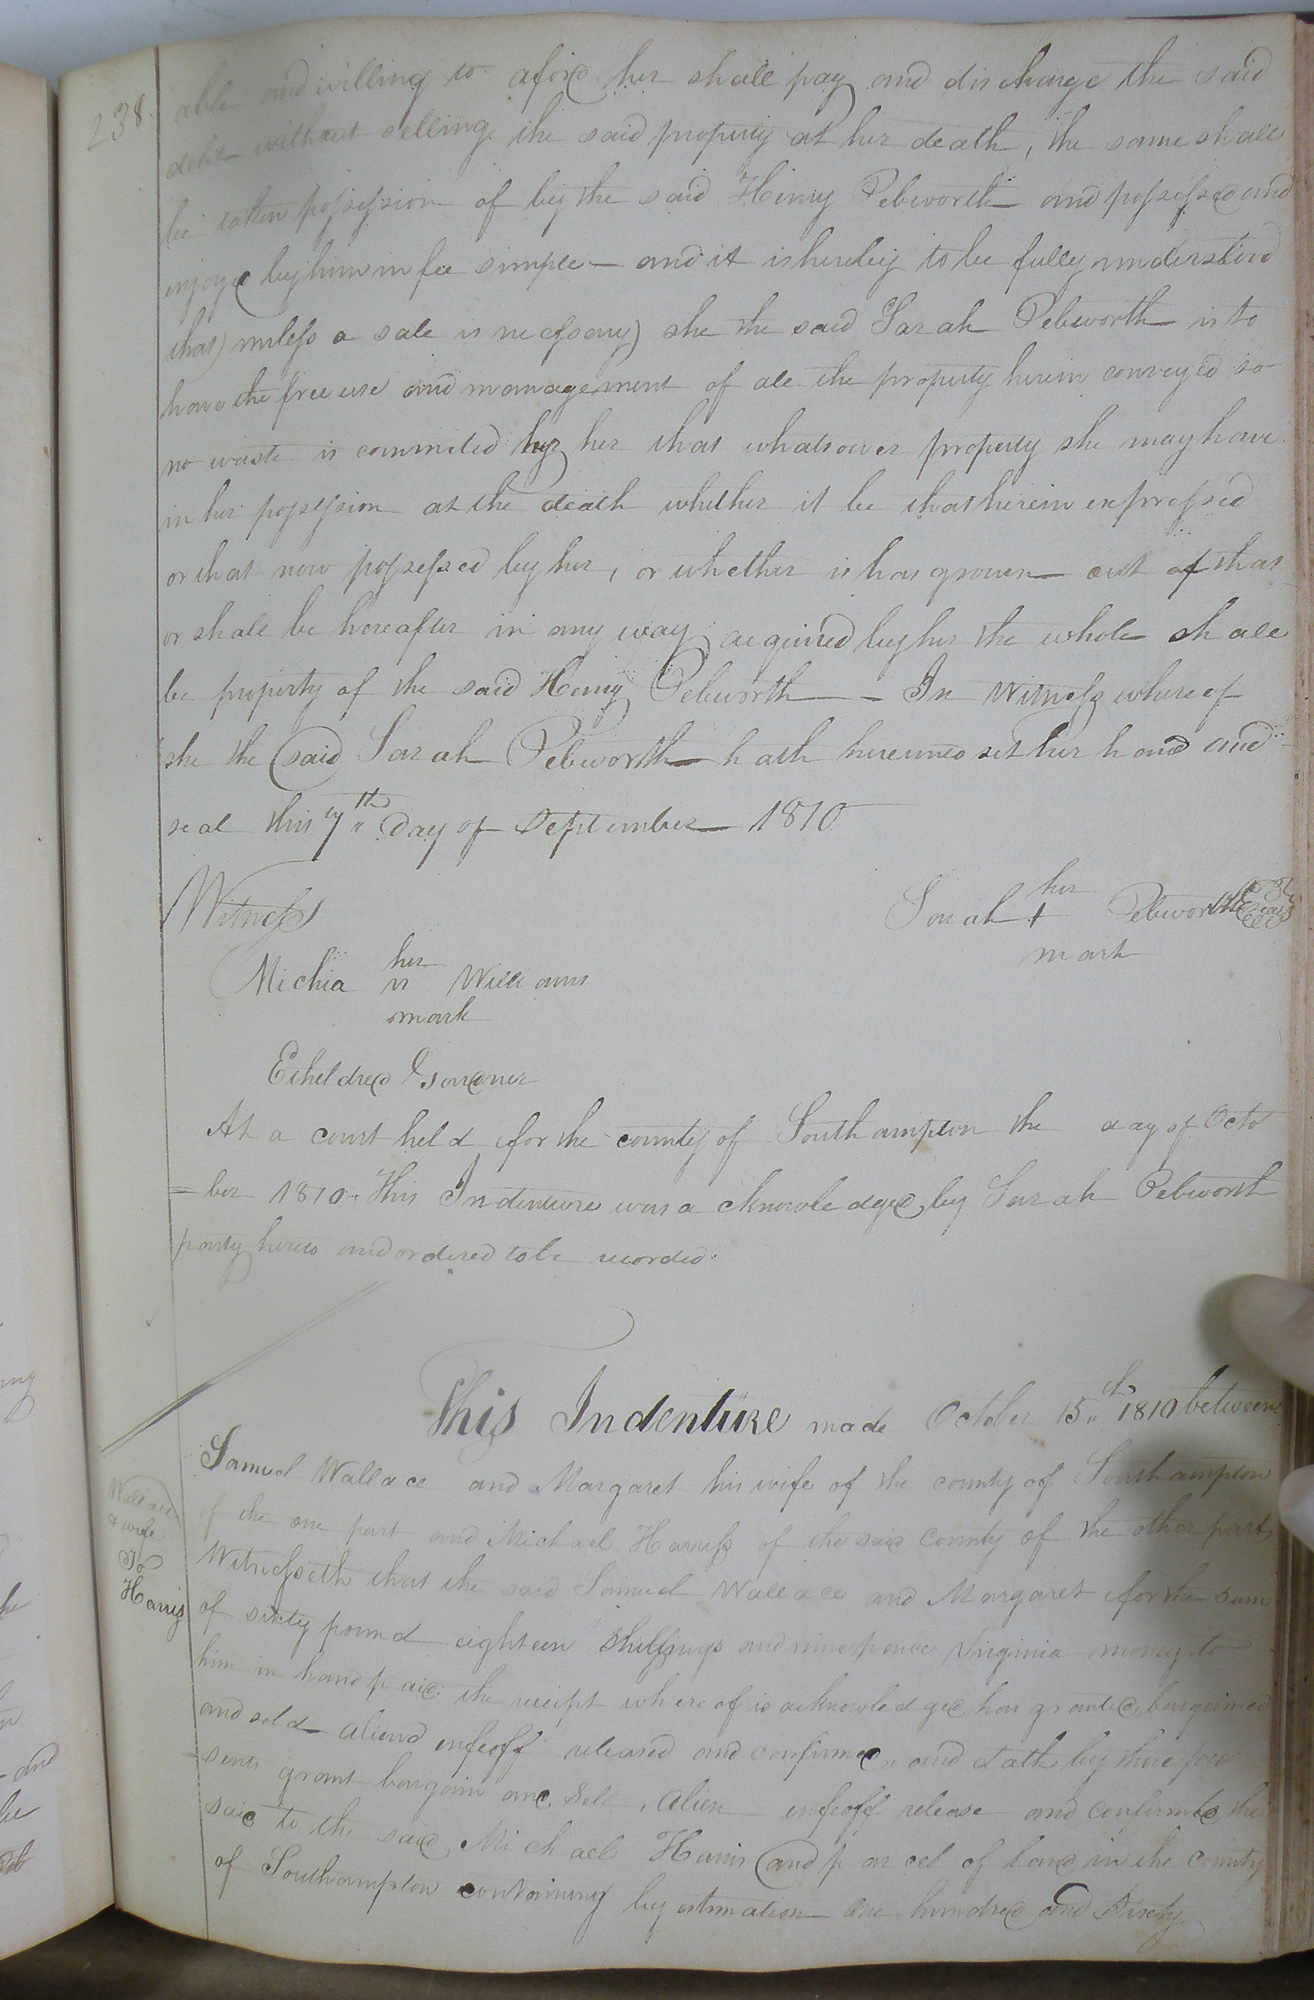 238.
able and willing to aford her shall pay and discharge the said
debt without selling the said property at her death, the same shall
be taken possession of by the said Henry Pebworth and possessed and
enjoyed by him in fee simple — and it is hereby to be fully understood
that) unless a sale is necessary) she the said Sarah Pebworth is to
have the free use and management of all the property herein conveyed so
no waste is commited by her that whatsover property she may have
in her possession at the death whether it be that herein expressed
or that now possessed by her, or whether is has growen out of that
or shall be hereafter in any way acquired by her the whole shall
be property of the said Henry Pebworth — In Witness whereof
she the said Sarah Pebworth hath hereunto set her hand and
seal this 7th day of September 1810
Witness
Sarah her + mark Pebworth
Michia her mark Williams
Etheldred
At a court held for the county of Southampton the day of Octo
=ber 1810. This Indenture was acknowledged by Sarah Pebworth
party hereto and ordered to be recorded.
This Indenture made October 15th 1810 between
Wallace
& wife
To
Harris
Samuel Wallace and Margaret his wife of the county of Southampton
of the one part and Michael Harriss of the said County of the other part,
Witnesseth that the said Samuel Wallace and Margaret for the sum
of sixty pound eighteen Shillings and nine pence Virginia money to
him in hand paid the receipt whereof is acknowledged has granted, bargained
and sold aliend enfeoff released and confirmed, and doth by these pre
=sents grant bargain and Sell, Alien enfeoff release and confirm to the
said to the said Michael Harris and parcel of land in the County
of Southampton containing by estimation one hundred and Sixty